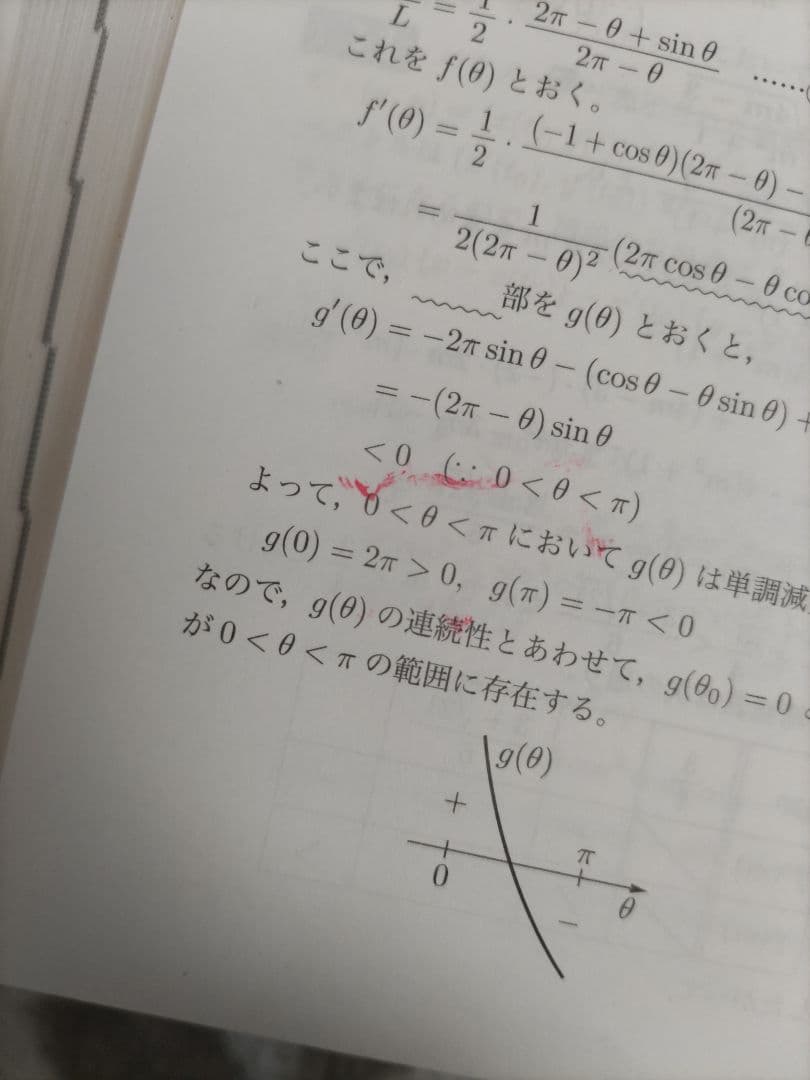 L = 1/2 · (2π − θ + sin θ)/(2π − θ) ……
これを f(θ) とおく。
f′(θ) = 1/2 · (−1 + cos θ)(2π − θ) − / (2π −
= 1/(2(2π − θ)²) (2π cos θ − θ co
ここで, 部を g(θ) とおくと,
g′(θ) = −2π sin θ − (cos θ − θ sin θ) +
= −(2π − θ) sin θ
< 0 (∵ 0 < θ < π)
よって, 0 < θ < π において g(θ) は単調減
g(0) = 2π > 0, g(π) = −π < 0
なので, g(θ) の連続性とあわせて, g(θ₀) = 0
が 0 < θ < π の範囲に存在する。
g(θ)
+
0
π
θ
−